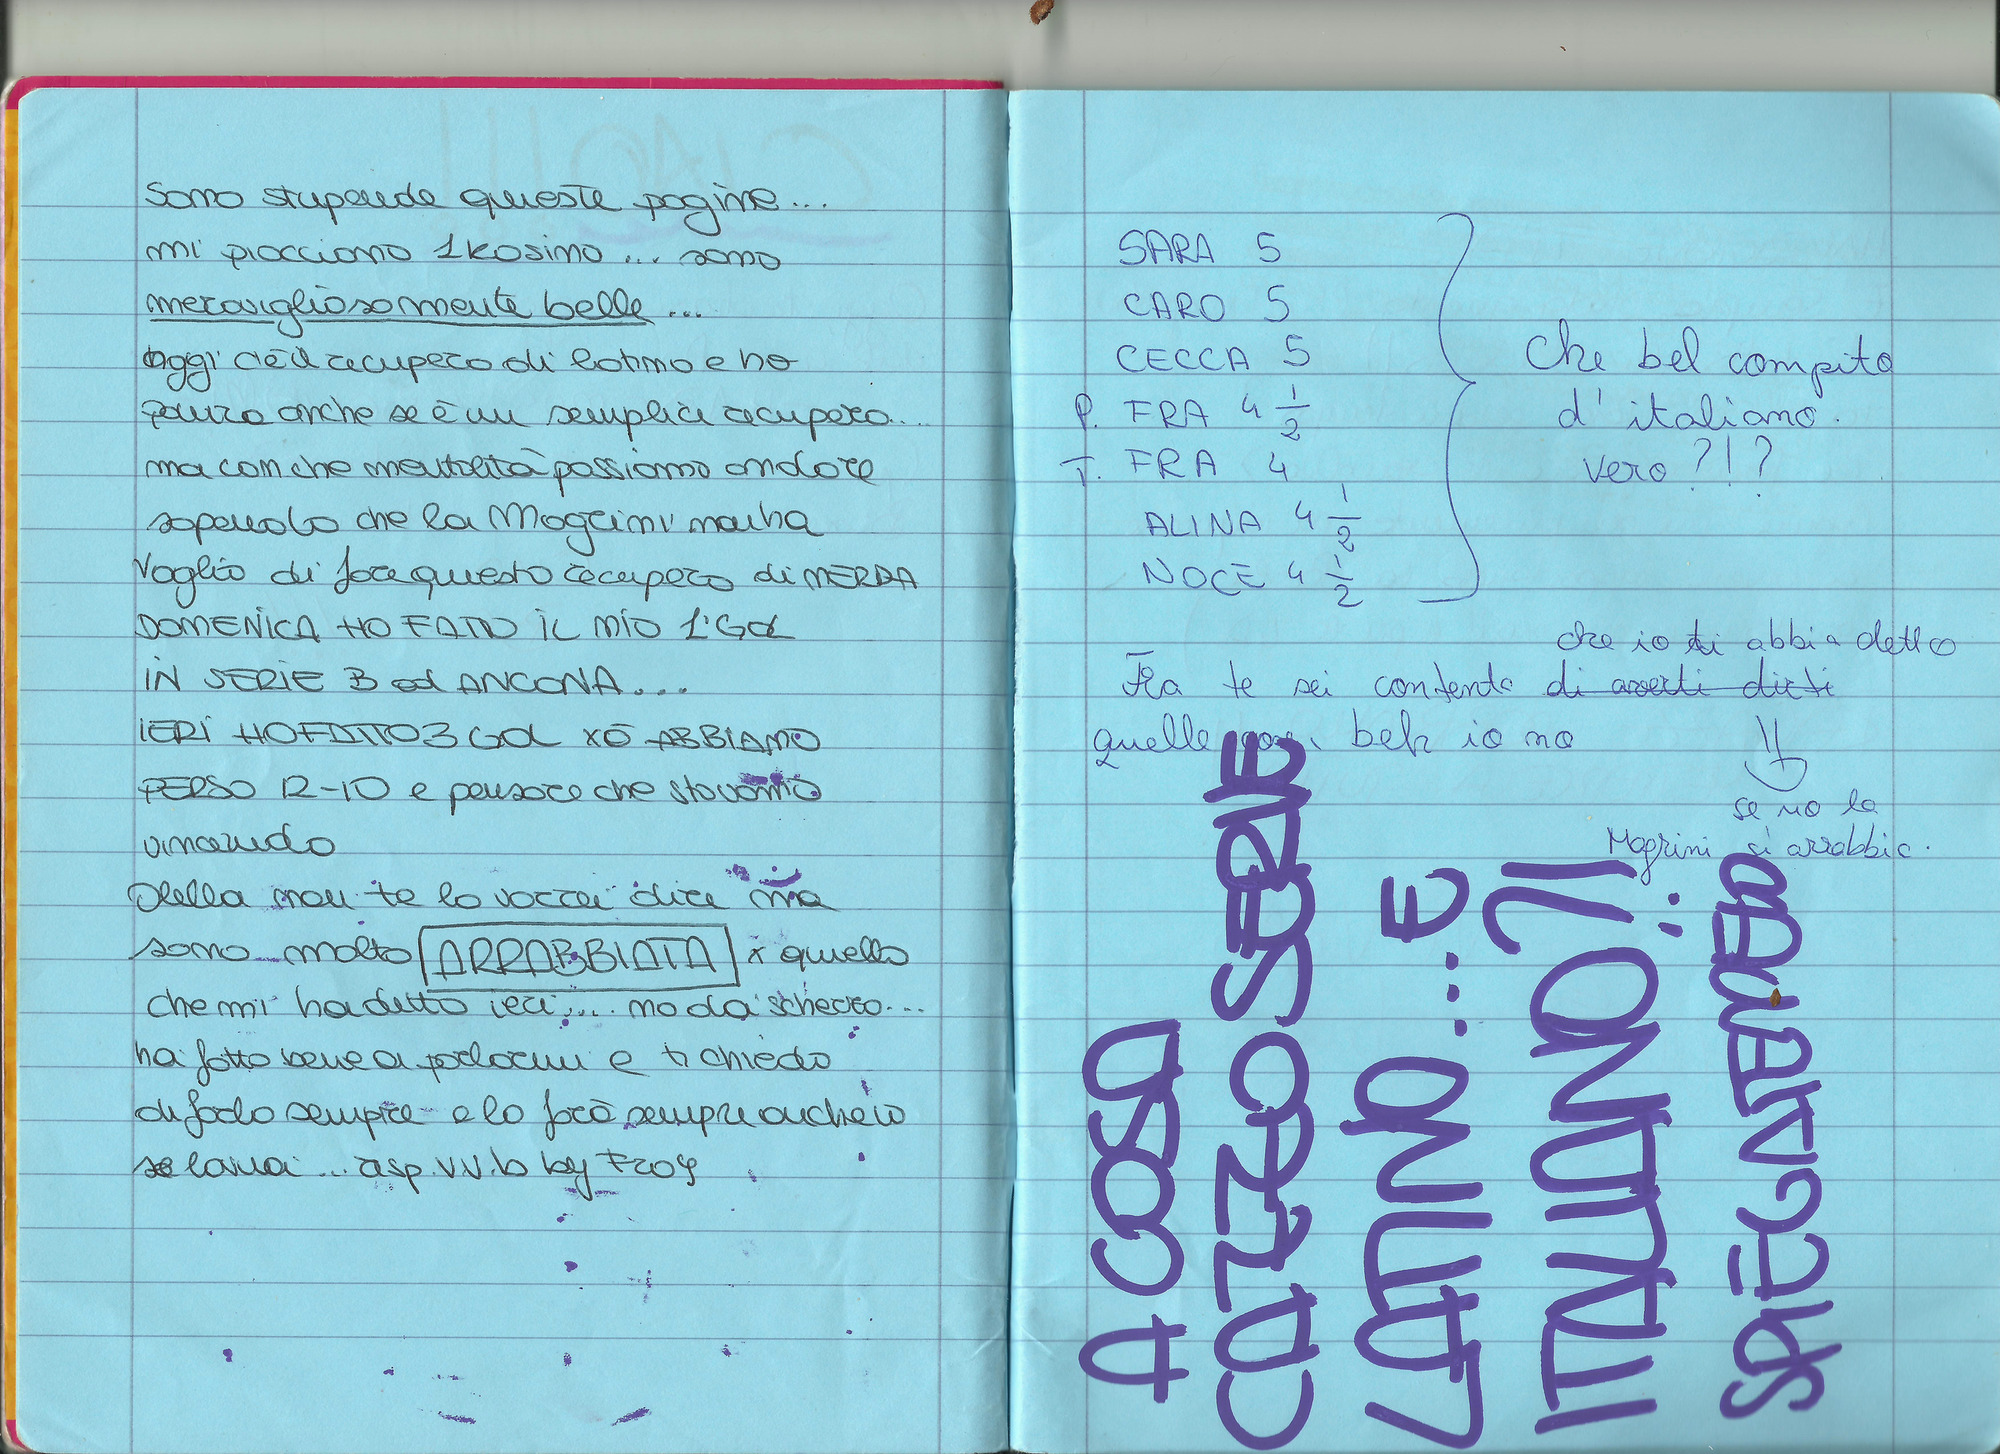 Sono stupende queste pagine...
mi piacciono 1kosino... sono
meravigliosamente belle...
oggi c'è il recupero di latino e ho
paura anche se è un semplice recupero...
ma con che mentalità possiamo andare
sapendo che la Magrini non ha
voglia di fare questo recupero di MERDA
DOMENICA HO FATTO IL MIO 1° GOL
IN SERIE B ad ANCONA....
IERI HO FATTO 3 GOL XÒ ABBIAMO
PERSO 12-10 e pensare che stavamo
vincendo
Della non te lo vorrei dire ma
sono molto ARRABBIATA x quello
che mi ha detto ieri.... no dai scherzo...
ha fatto bene a parlarmi e ti chiedo
di farlo sempre e lo farò sempre anche io
se lo vuoi... risp. v.v.b by Fra
SARA 5
CARO 5
CECCA 5
P. FRA 4 1/2
T. FRA 4
ALINA 4 1/2
NOCE 4 1/2
Che bel compito
d'italiano.
vero?!?
che io ti abbia detto
Fra te sei contenta di averti detto
quelle cose, beh io no
se no la
Magrini si arrabbia.
A COSA
CAZZO SERVE
LATINO... E
ITALIANO?!